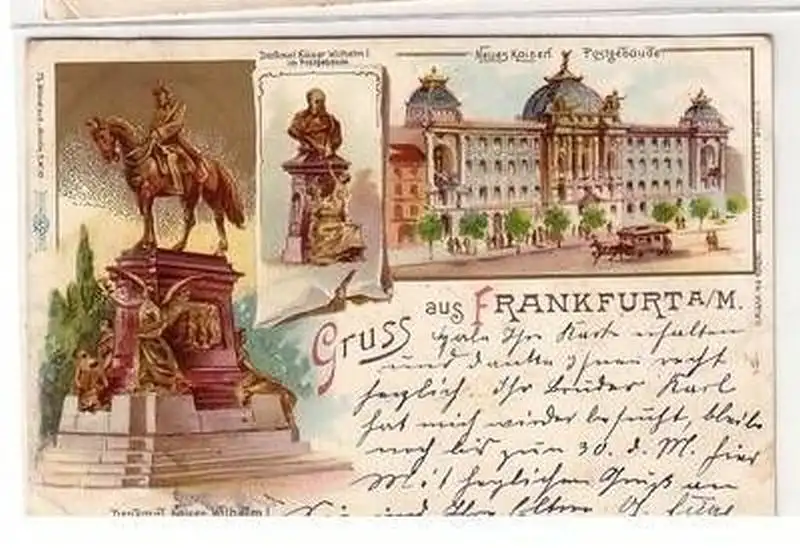 Denkmal Kaiser Wilhelm I
im Postgebäude
Neues Kaiserl. Postgebäude
Gruss aus FRANKFURT A/M.
Ihre Karte erhalten
und danke Ihnen recht
herzlich. Ihr Bruder Karl
hat mich wieder besucht, bleibe
noch bis zum 30. d. M. hier
Mit herzlichem Gruß an
Sie und Ihre Eltern
Denkmal Kaiser Wilhelm I